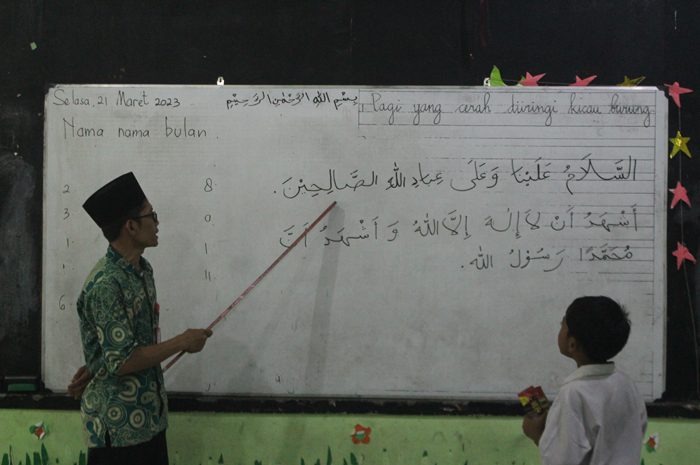 Selasa, 21 Maret 2023
بِسْمِ اللهِ الرَّحْمٰنِ الرَّحِيْمِ
Pagi yang cerah diiringi kicau burung
Nama nama bulan
السَّلَامُ عَلَيْنَا وَعَلَى عِبَادِ اللهِ الصَّالِحِيْنَ.
أَشْهَدُ أَنْ لَا إِلٰهَ إِلَّا اللهُ وَ أَشْهَدُ أَنَّ
مُحَمَّدًا رَسُوْلُ اللهِ.
2
8.
3
9.
1.
11
6